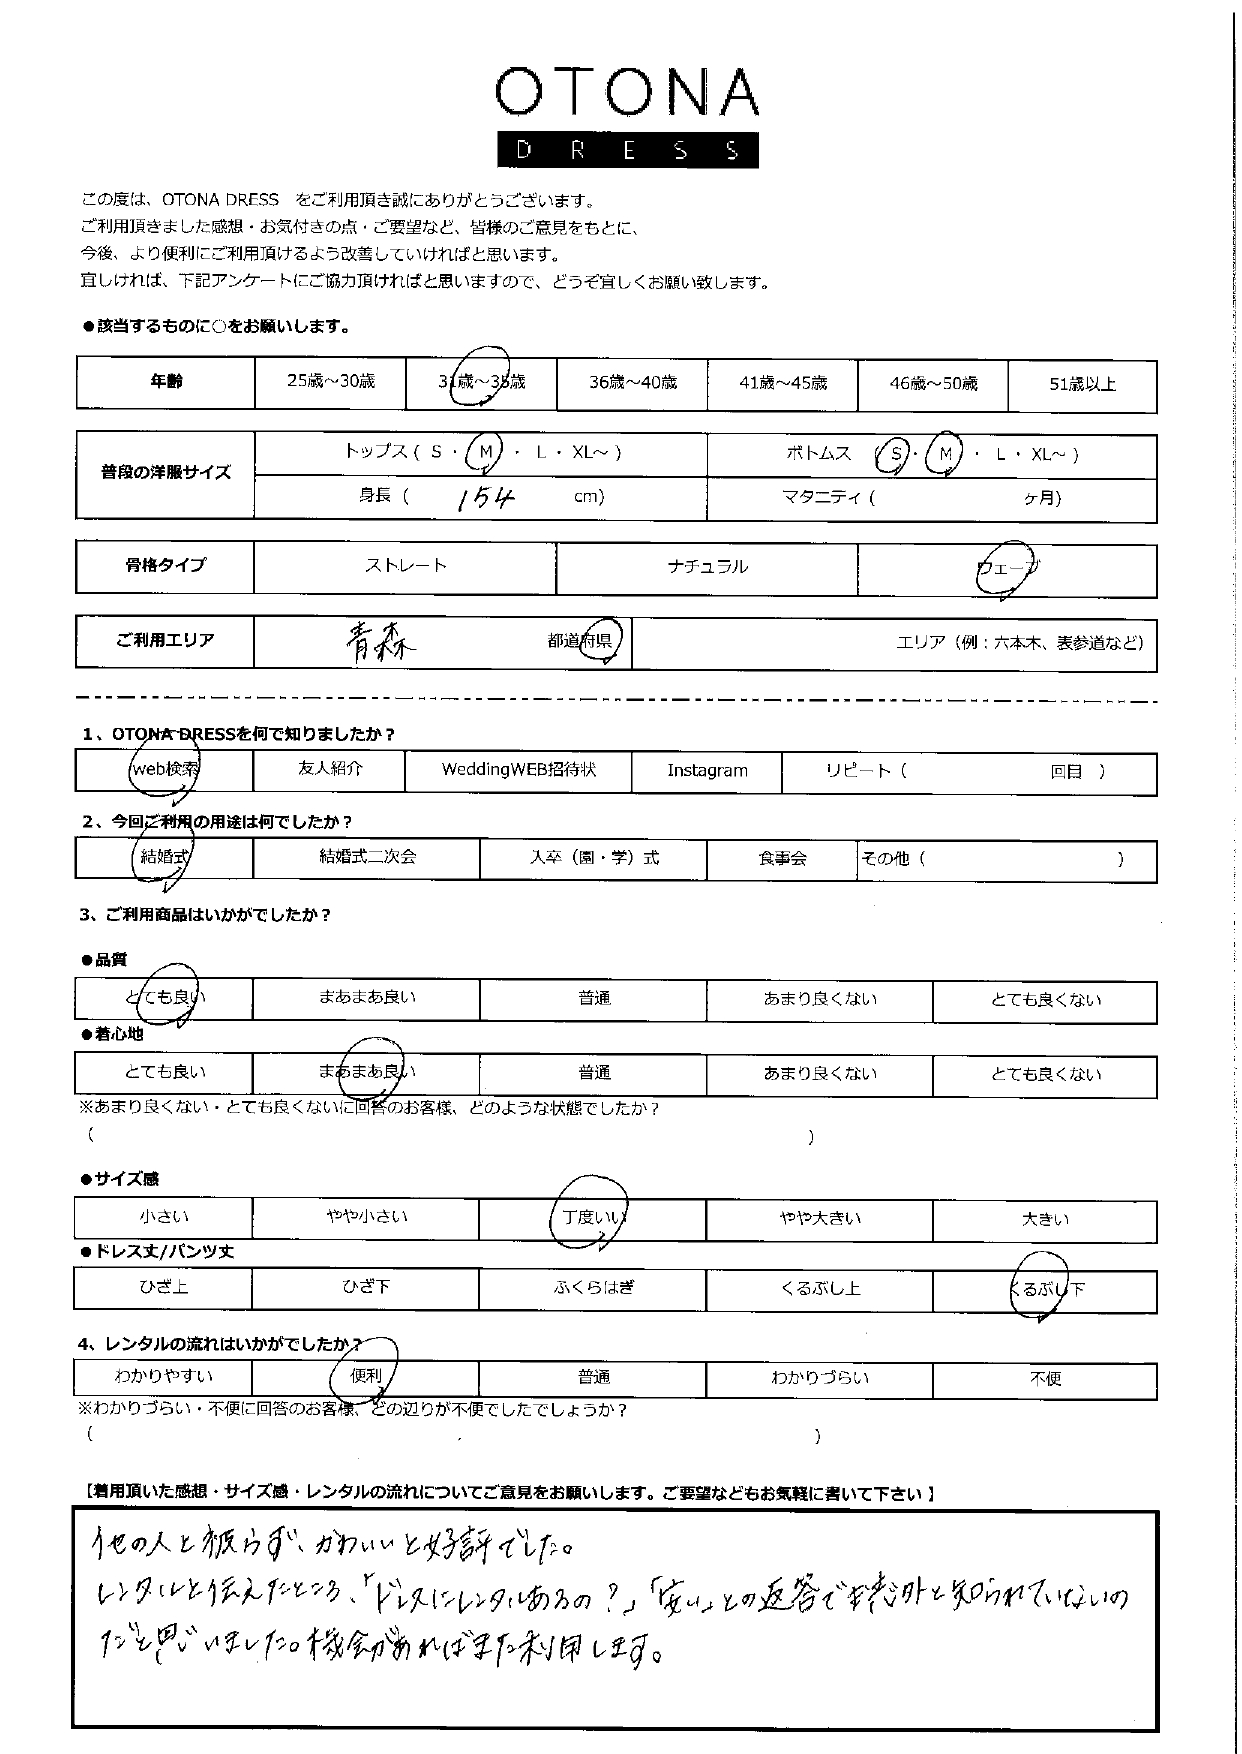 OTONA
DRESS
この度は、OTONA DRESS　をご利用頂き誠にありがとうございます。
ご利用頂きました感想・お気付きの点・ご要望など、皆様のご意見をもとに、
今後、より便利にご利用頂けるよう改善していければと思います。
宜しければ、下記アンケートにご協力頂ければと思いますので、どうぞ宜しくお願い致します。
●該当するものに○をお願いします。
年齢 25歳～30歳 31歳～35歳 36歳～40歳 41歳～45歳 46歳～50歳 51歳以上
普段の洋服サイズ トップス ( S ・ M ・ L ・ XL～ ) ボトムス ( S ・ M ・ L ・ XL～ )
身長 ( 154 cm) マタニティ ( ヶ月)
骨格タイプ ストレート ナチュラル ウェーブ
ご利用エリア 青森 都道府県 エリア（例：六本木、表参道など）
1、OTONA DRESSを何で知りましたか？
web検索 友人紹介 WeddingWEB招待状 Instagram リピート ( 回目 )
2、今回ご利用の用途は何でしたか？
結婚式 結婚式二次会 入卒（園・学）式 食事会 その他 ( )
3、ご利用商品はいかがでしたか？
●品質
とても良い まあまあ良い 普通 あまり良くない とても良くない
●着心地
とても良い まあまあ良い 普通 あまり良くない とても良くない
※あまり良くない・とても良くないに回答のお客様、どのような状態でしたか？
( )
●サイズ感
小さい やや小さい 丁度いい やや大きい 大きい
●ドレス丈/パンツ丈
ひざ上 ひざ下 ふくらはぎ くるぶし上 くるぶし下
4、レンタルの流れはいかがでしたか？
わかりやすい 便利 普通 わかりづらい 不便
※わかりづらい・不便に回答のお客様、どの辺りが不便でしたでしょうか？
( )
【着用頂いた感想・サイズ感・レンタルの流れについてご意見をお願いします。ご要望などもお気軽に書いて下さい 】
他の人と被らず、かわいいと好評でした。
レンタルと伝えたところ、「ドレスにレンタルあるの？」「安い」との返答で意外と知られていないの
だと思いました。機会があればまた利用します。